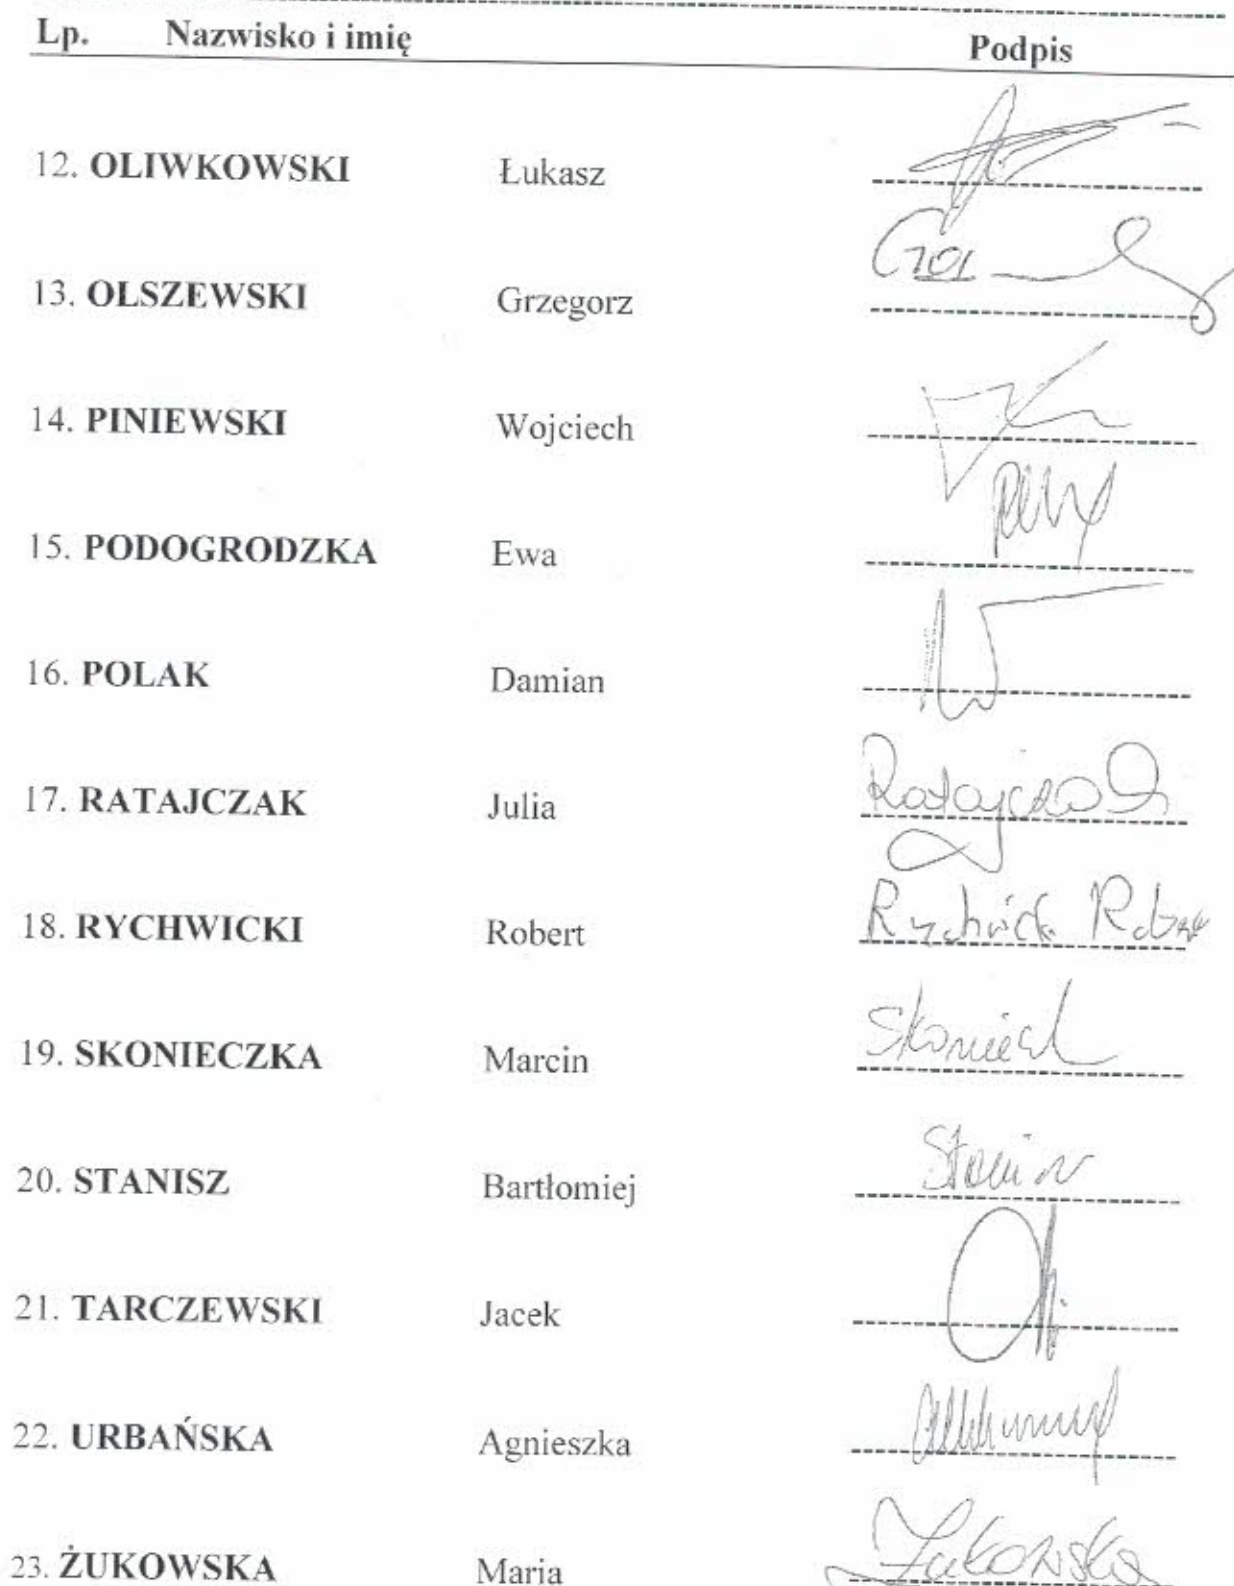 Lp. Nazwisko i imię Podpis
12. OLIWKOWSKI Łukasz
13. OLSZEWSKI Grzegorz
14. PINIEWSKI Wojciech
15. PODOGRODZKA Ewa
16. POLAK Damian
17. RATAJCZAK Julia Ratajczak
18. RYCHWICKI Robert Rychwicki Robert
19. SKONIECZKA Marcin
20. STANISZ Bartłomiej
21. TARCZEWSKI Jacek
22. URBAŃSKA Agnieszka
23. ŻUKOWSKA Maria Żukowska